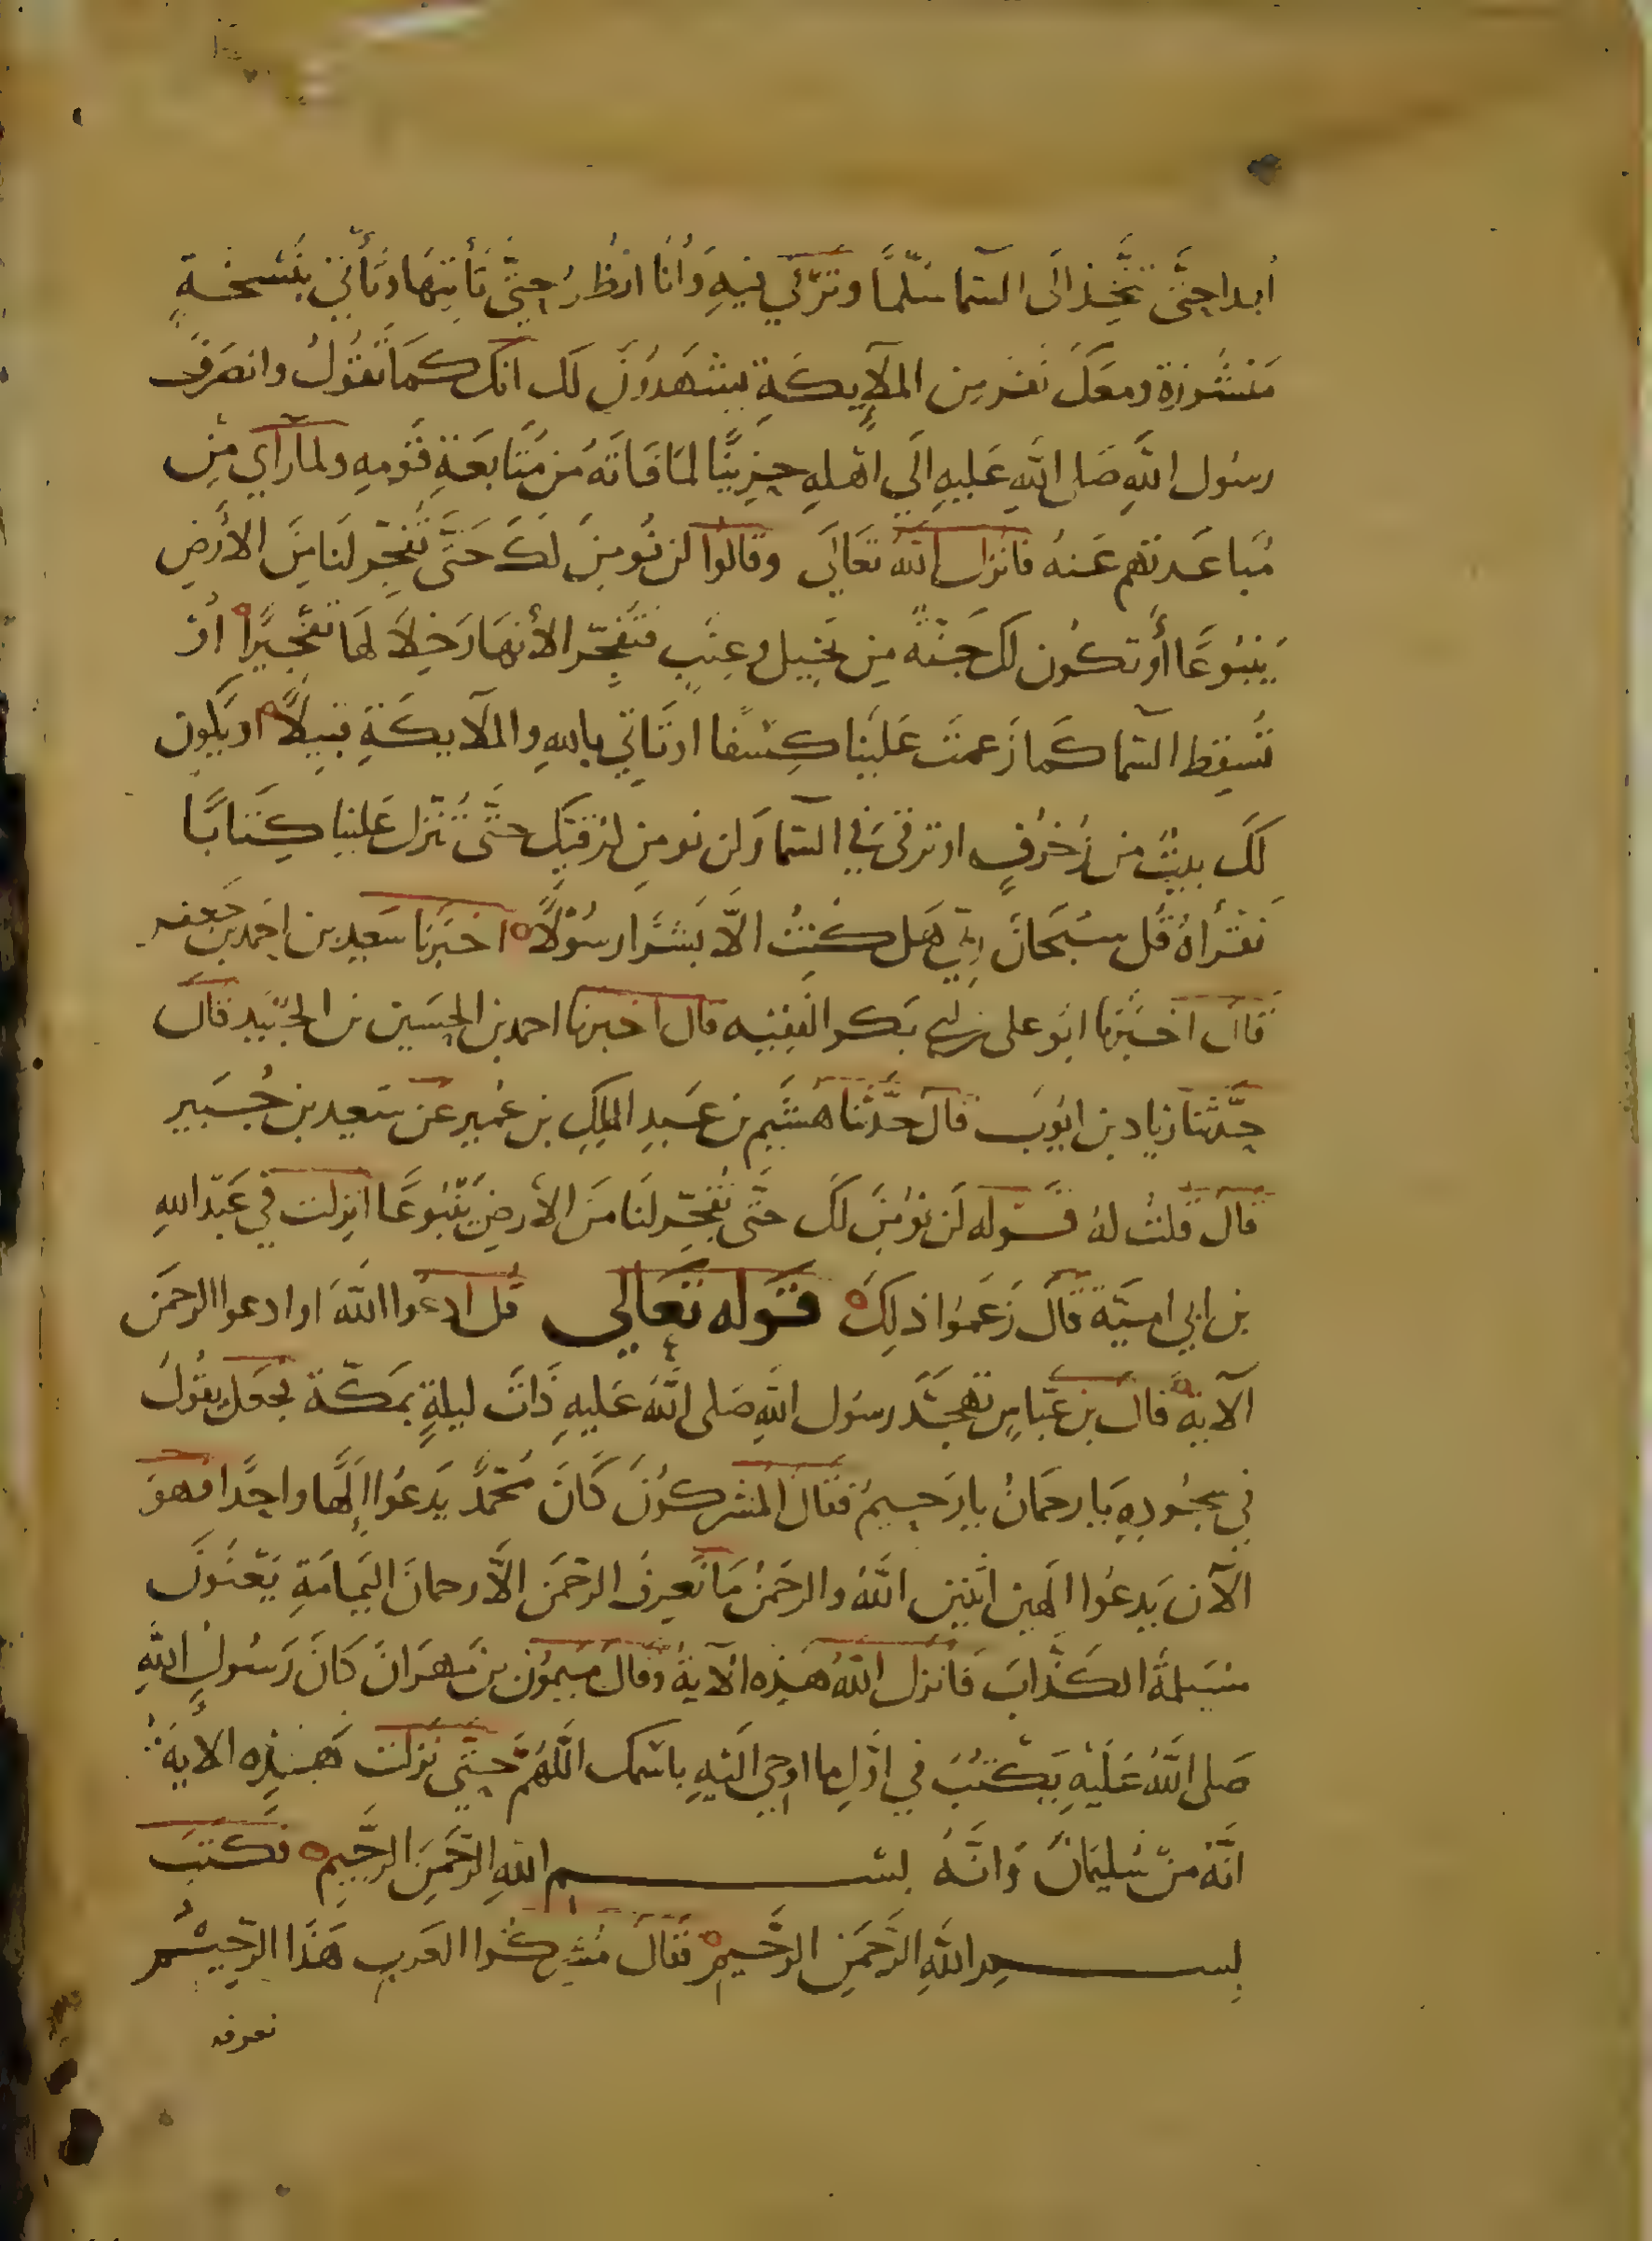 ابدا حتى تتخذ الى السما سلما وترقى فيه وانا انظر حتى تاتيها وتاتي بنسخة
منشورة ومعك نفر من الملايكة يشهدون لك انك كما تقول وانصرف
رسول الله صلى الله عليه الي اهله حزينا لما فاته من متابعة قومه ولما راي من
مباعدتهم عنه فانزل الله تعالى وقالوا لن نومن لك حتى تفجر لنا من الأرض
ينبوعا أو تكون لك جنة من نخيل وعنب فتفجر الأنهار خلالها تفجيرا او
تسقط السما كما زعمت علينا كسفا او تاتي بالله والملايكة قبيلا او يكون
لك بيت من زخرف او ترقى في السما ولن نومن لرقيك حتى تنزل علينا كتابا
نقرأه قل سبحان ربي هل كنت الا بشرا رسولا اخبرنا سعيد بن احمد بن جعفر
قال اخبرنا ابو على بن ابي بكر الفقيه قال اخبرنا احمد بن الحسين بن الجنيد قال
حدثنا زياد بن ايوب قال حدثنا هشيم بن عبد الملك بن عمير عن سعيد بن جبير
قال قلت له قوله لن نومن لك حتى تفجر لنا من الأرض ينبوعا انزلت في عبد الله
بن ابي امية قال زعموا ذلك قوله تعالي قل ادعوا الله او ادعوا الرحمن
الآية قال بن عباس تهجد رسول الله صلى الله عليه ذات ليلة بمكة فجعل يقول
في سجوده يا رحمان يا رحيم فقال المشركون كان محمد يدعوا إلها واحدا فهو
الآن يدعوا الهين اثنين الله والرحمن ما نعرف الرحمن الا رحمان اليمامة يعنون
مسيلمة الكذاب فانزل الله هذه الآية وقال ميمون بن مهران كان رسول الله
صلى الله عليه يكتب في اول ما اوحي اليه باسمك اللهم حتى نزلت هذه الاية
انه من سليمان وانه بسم الله الرحمن الرحيم فكتب
بسم الله الرحمن الرحيم فقال مشركوا العرب هذا الرحيم
نعرفه